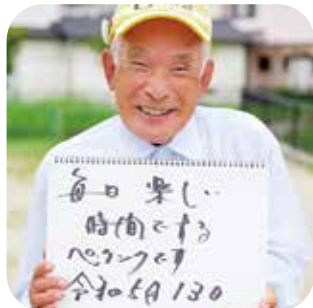 毎日 楽しい
時間でする
ペタンクです
令和5月130